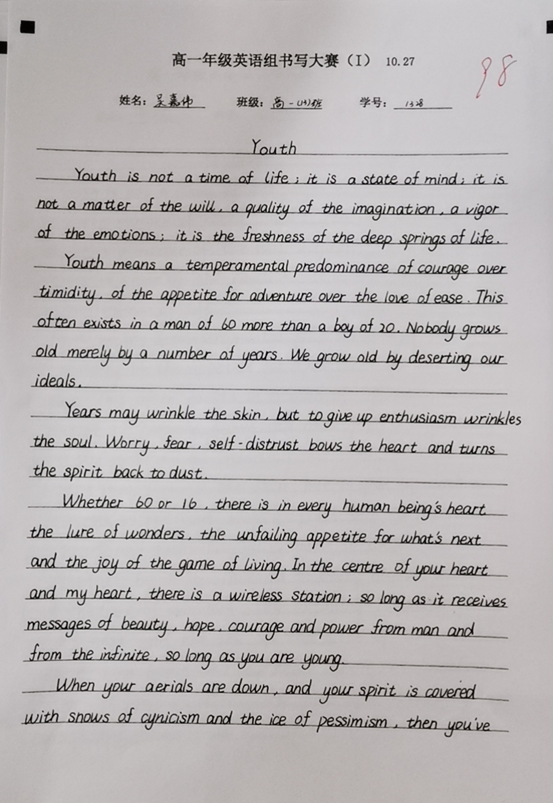 高一年级英语组书写大赛（I） 10.27
98
姓名： 吴嘉伟 班级： 高一 班 学号： 1328
Youth
Youth is not a time of life ; it is a state of mind ; it is
not a matter of the will , a quality of the imagination , a vigor
of the emotions ; it is the freshness of the deep springs of life .
Youth means a temperamental predominance of courage over
timidity , of the appetite for adventure over the love of ease . This
often exists in a man of 60 more than a boy of 20 . Nobody grows
old merely by a number of years . We grow old by deserting our
ideals .
Years may wrinkle the skin , but to give up enthusiasm wrinkles
the soul . Worry , fear , self-distrust bows the heart and turns
the spirit back to dust .
Whether 60 or 16 , there is in every human being's heart
the lure of wonders , the unfailing appetite for what's next
and the joy of the game of living . In the centre of your heart
and my heart , there is a wireless station ; so long as it receives
messages of beauty , hope , courage and power from man and
from the infinite , so long as you are young .
When your aerials are down , and your spirit is covered
with snows of cynicism and the ice of pessimism , then you've